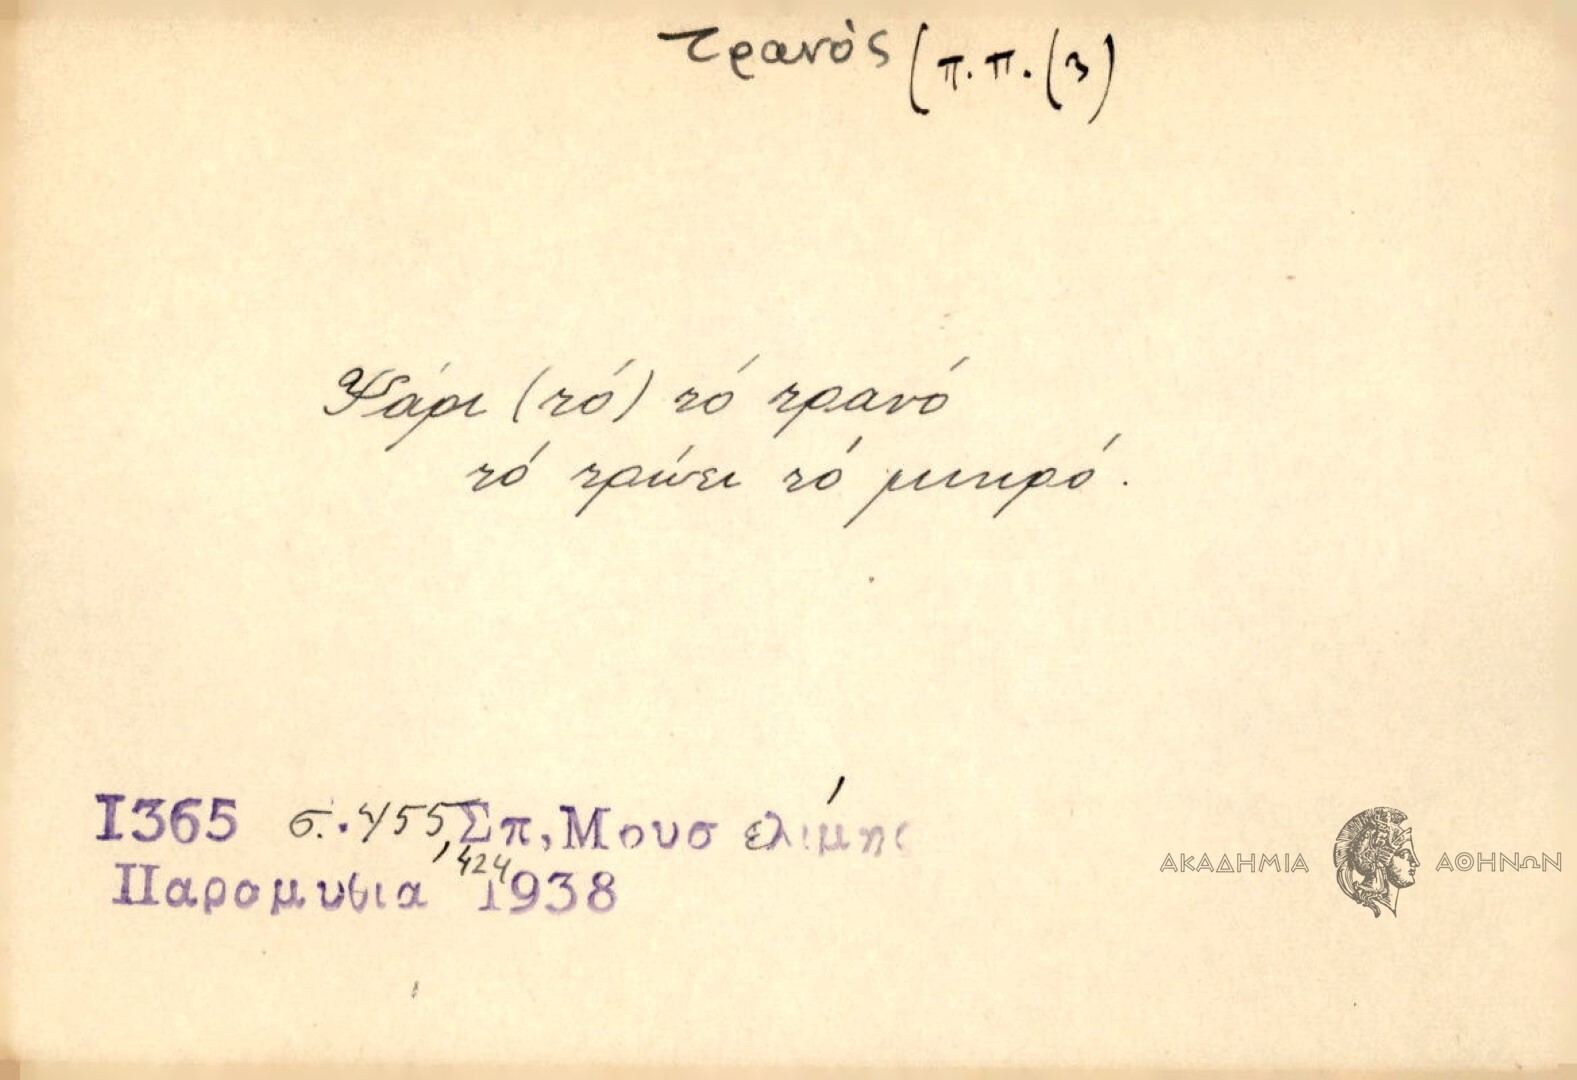 τρανός (π.π. (3)
Ψάρι (τό) τό τρανό
τό τρώει τό μικρό.
1365 σ. 455, 424 Σπ. Μουσελίμης
Παραμυθιά 1938
ΑΚΑΔΗΜΙΑ ΑΘΗΝΩΝ